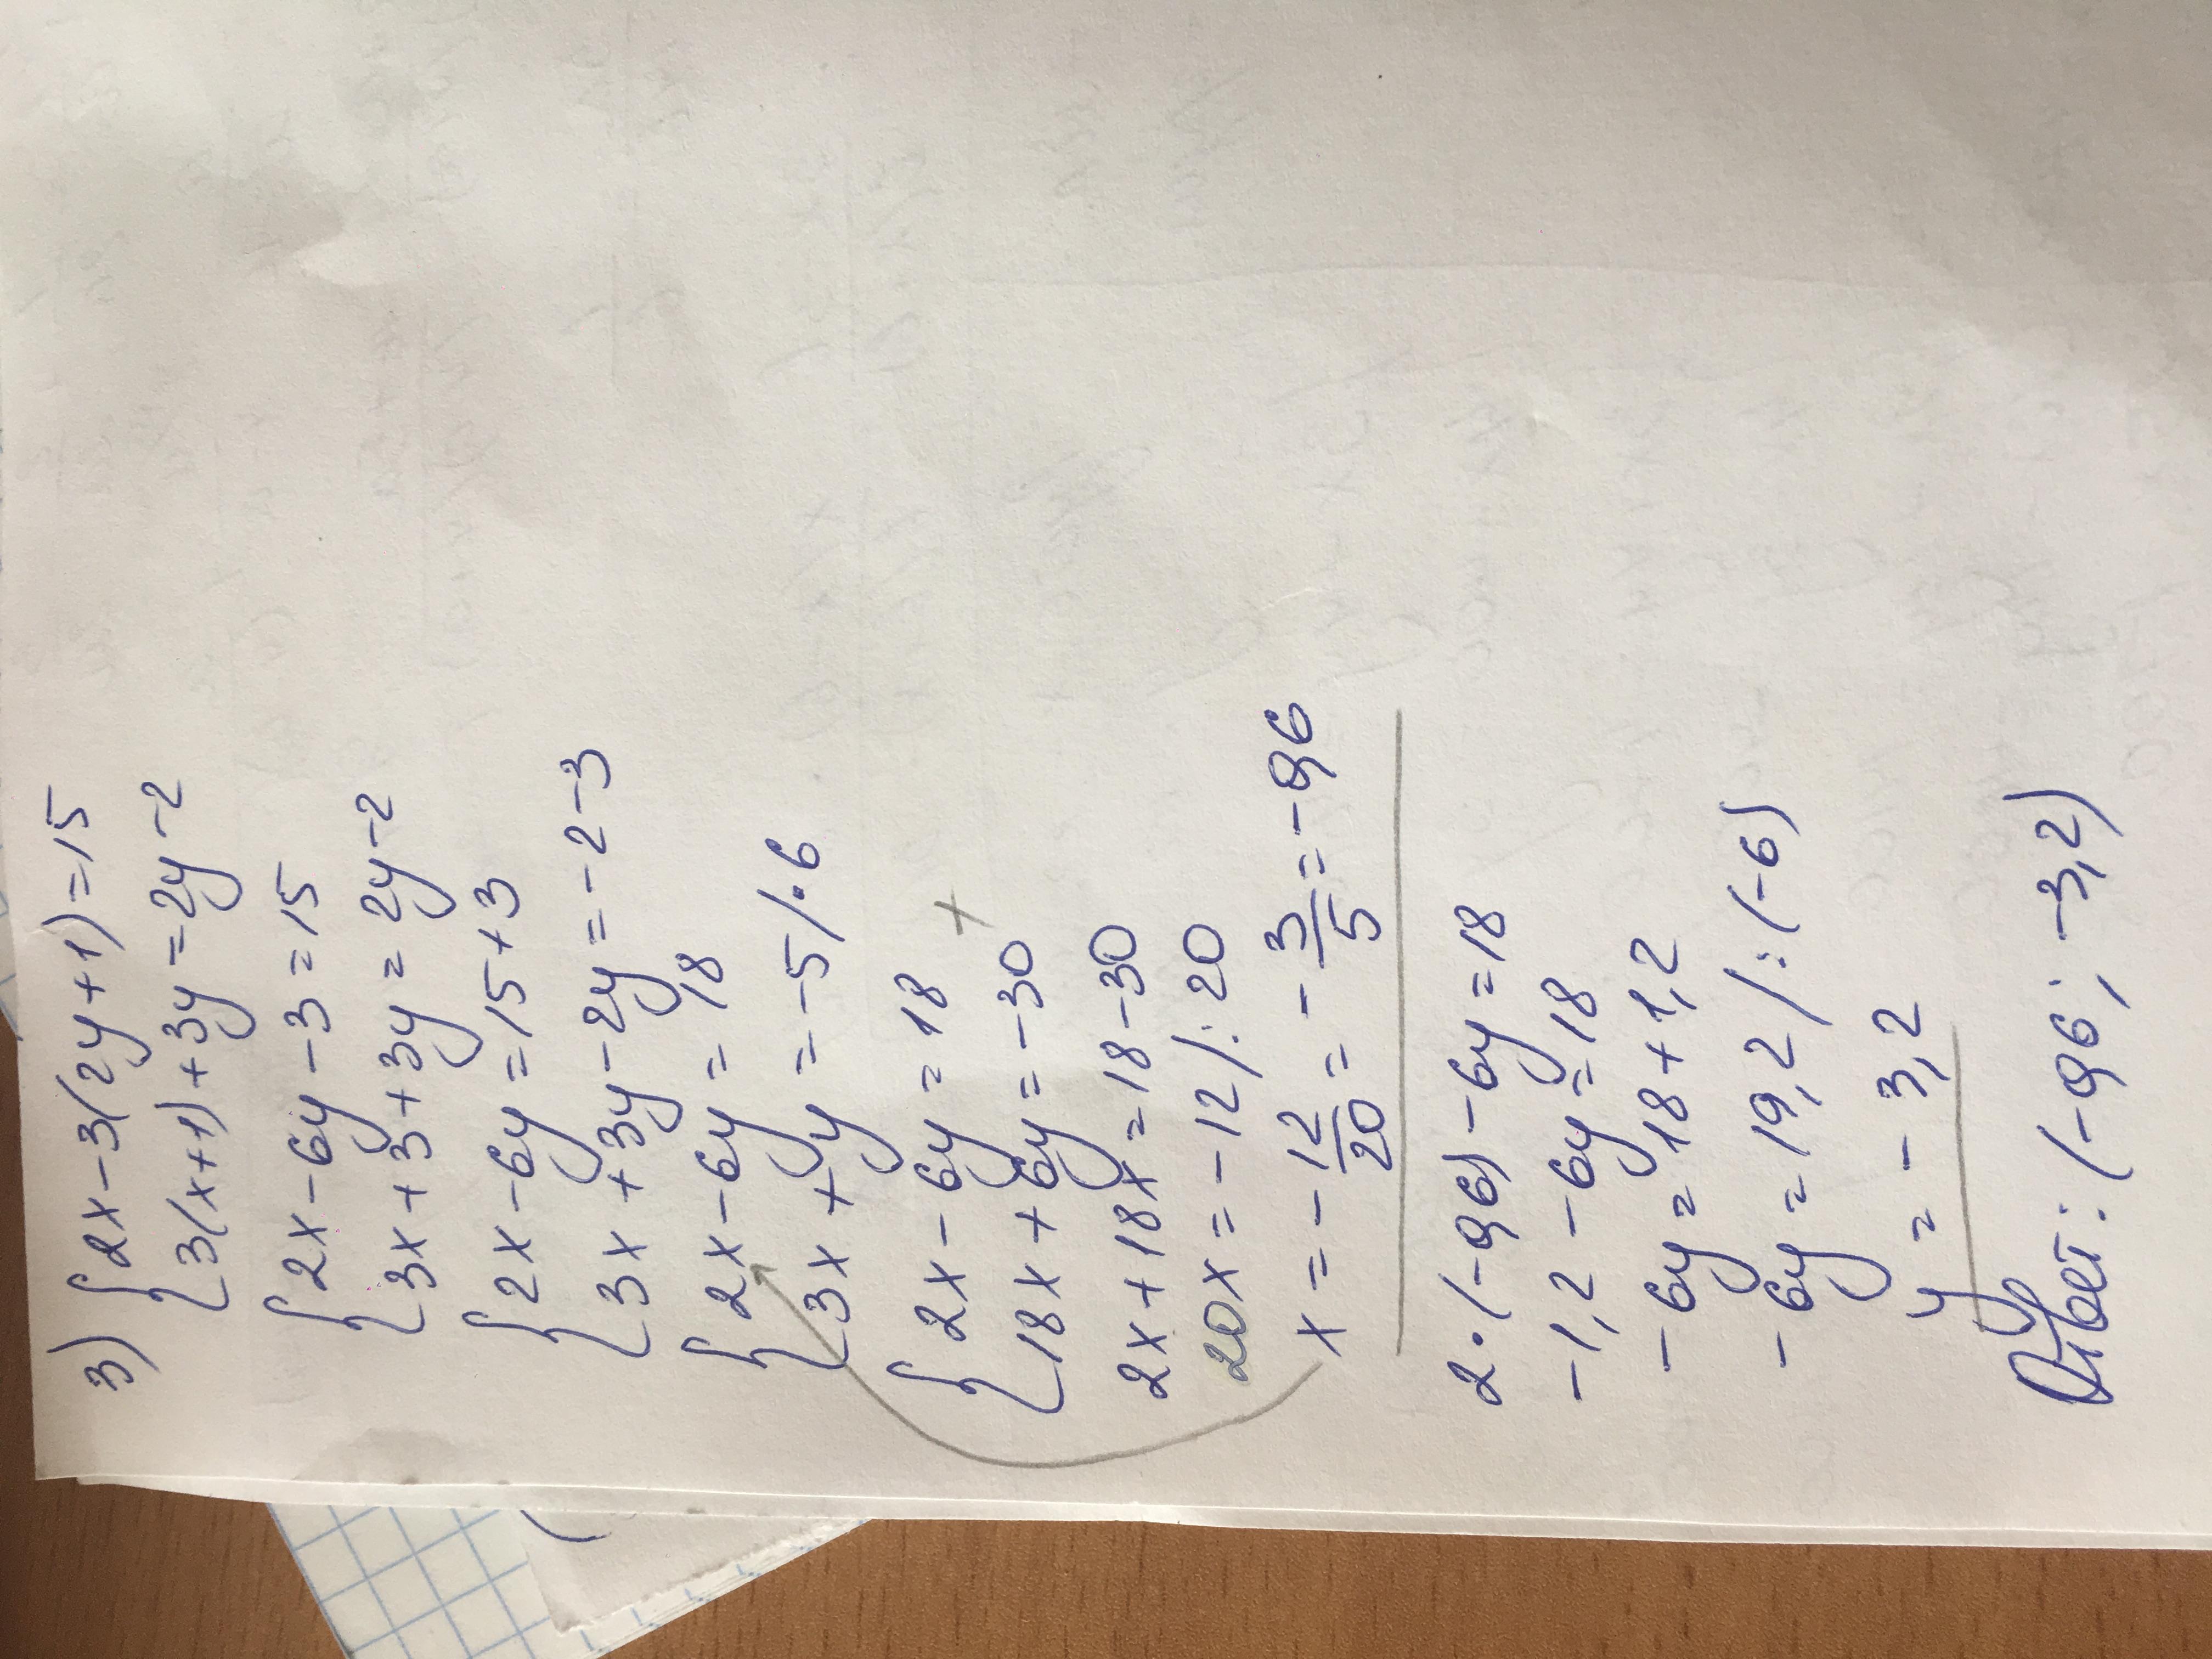 3) {2x-3(2y+1)=15
{3(x+1)+3y=2y-2
{2x-6y-3=15
{3x+3+3y=2y-2
{2x-6y=15+3
{3x+3y-2y=-2-3
{2x-6y=18
{3x+y=-5/·6
{2x-6y=18
{18x+6y=-30 +
2x+18x=18-30
20x=-12/:20
x=-12/20=-3/5=-0,6
2·(-0,6)-6y=18
-1,2-6y=18
-6y=18+1,2
-6y=19,2/:(-6)
y=-3,2
Ответ: (-0,6; -3,2)